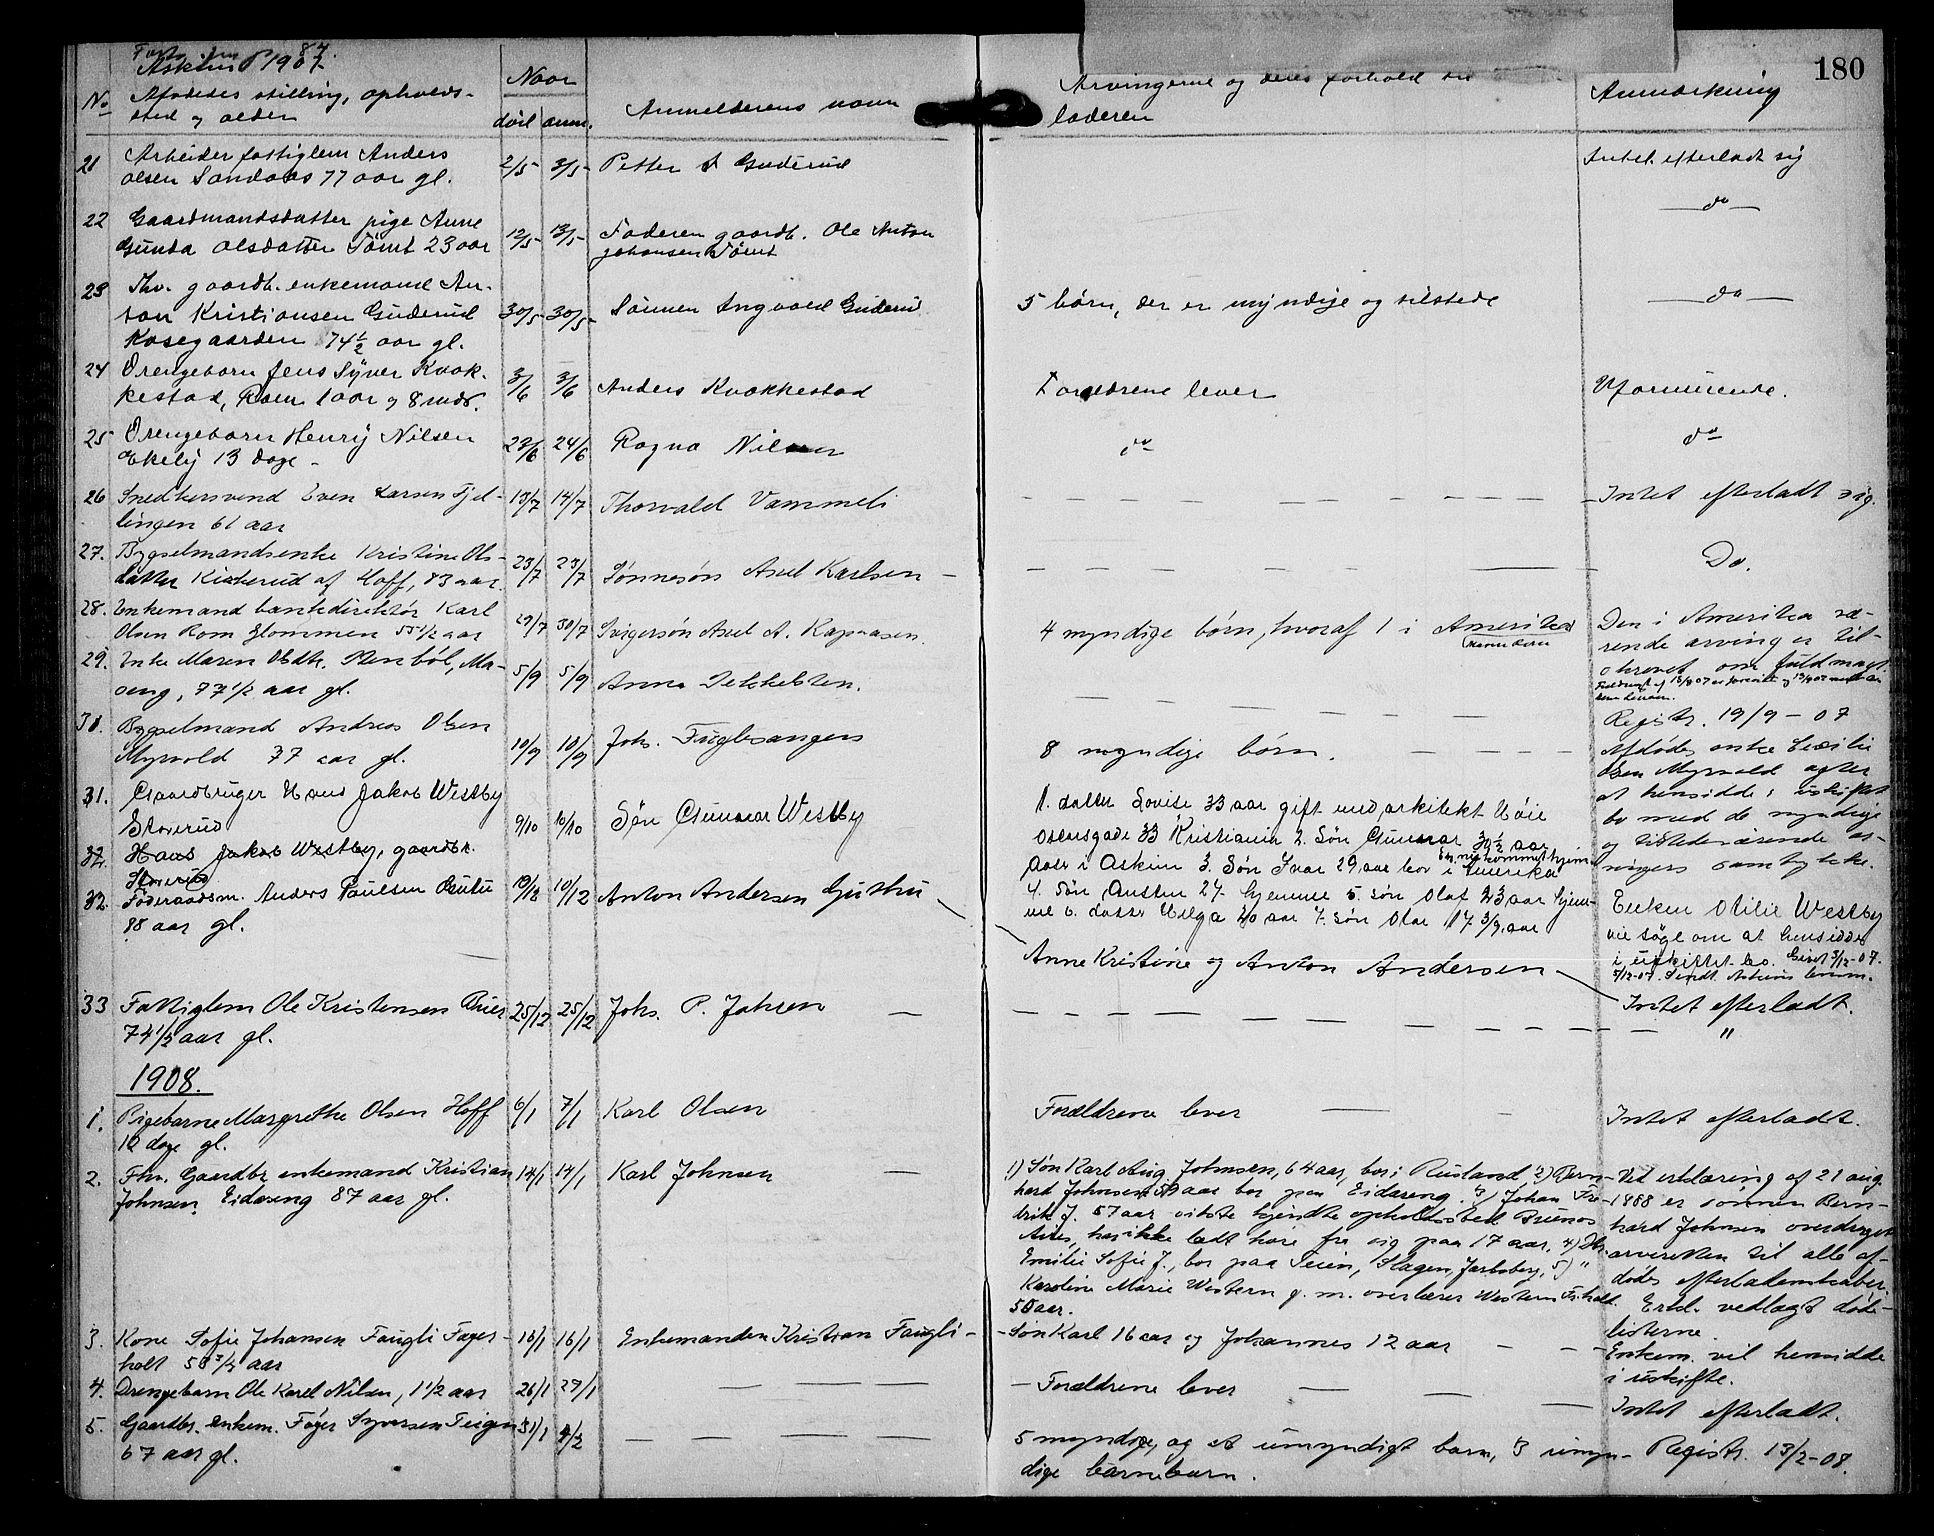 180
Askim 1907
No Afdødes stilling, opholds- Naar Anmelderens navn Arvingerne og deres forhold til Anmerkning
sted og alder død anm. laderen
21 Arbeider fattiglem Anders 2/5 3/5 Petter Guderud Intet efterladt sig
Olsen Sandaas 77 aar gl.
22 Gaardmandsdatter pige Anne 12/5 13/5 Faderen gaardb. Ole Anton do
Gunda Olsdatter Tömt 23 aar Johansen Tömt
23 Fhv. gaardb. enkemand An- 30/5 30/5 Sönnen Ingvald Guderud 5 börn, der er myndige og tilstede do
ton Kristiansen Guderud
Kosegaarden 74½ aar gl.
24 Drengebarn Jens Syver Kvak- 3/6 3/6 Anders Kvakkestad Forældrene lever Uformuende.
kestad, Roen 1 aar og 8 mdr.
25 Drengebarn Henry Nilsen 23/6 24/6 Ragna Nilsen do do
Ekely 13 dage
26 Snedkersvend Even Larsen Fjel- 13/7 14/7 Thorvald Vammeli Intet efterladt sig.
lingen 61 aar
27. Bygselmandsenke Kristine Ols- 23/7 23/7 Sønnesøn Axel Karlsen Do.
datter Kisterud af Hoff, 83 aar.
28. Enkemand bankdirektør Karl 29/7 30/7 Svigersøn Axel A. Kapaasen 4 myndige børn, hvoraf 1 i Amerika Den i Amerika væ-
Olsen Rom Glommen 55½ aar rende arving er til-
29. Enke Maren Olsdtr. Stenbøl, Ma- 5/9 5/9 Anna Dekkelsten. skrevet om fuldmagt.
seng, 77½ aar gl.
Registr. 19/9-07
30. Bygselmand Andreas Olsen 10/9 10/9 Joh. Fuglesangen 8 myndige børn. Afdødes enke
Myrvold 77 aar gl. Olsen Myrvold agter
31. Gaardbruger Hans Jakob Westby 9/10 10/10 Søn Gunnar Westby 1. datter Lovise 33 aar gift med arkitekt Höie at hensidde i uskiftet
Storerud Oscarsgade 33 Kristiania 2. Søn Gunnar 30½ aar bo med de myndige
32. Hans Jakob Westby, gaardbr. Askim 3. Søn Ivar 29 aar bor i Amerika og tilstedeværende ar-
Storerud Er nu kommet hjem vingers samtykke.
32. Føderaadsm. Anders Paulsen 10/12 10/12 Anton Andersen Guthu 4. Søn Austen 27. hjemme 5. søn Olaf 23 aar hjem-
88 aar gl. me 6. datter Helga 20 aar 7. søn Olar 17 3/4 aar Enken Otilie Westby
vil søge om at hensidde
Anne Kristine og Anton Andersen i uskiftet bo.
Intet efterladt.
33 Fattiglem Ole Kristensen 25/12 25/12 Johs. P. Jahren "
74½ aar gl.
1908.
1. Pigebarn Margrethe Olsen Hoff 6/1 7/1 Karl Olsen Forældrene lever Intet efterladt.
12 dage gl.
2. Fhv. Gaardbr. enkemand Kristian 14/1 14/1 Karl Johnsen 1) Søn Karl Aug. Johnsen, 64 aar, bor i Rustand, 2) Bern- Ved erklæring af 21 aug.
Johnsen Eidareng 87 aar gl. hard Johnsen 59 aar bor paa Eidareng. 3) Johan Fre- 1888 er sønnen Bern-
drik J. 57 aar sidste kjendte opholdssted Buenos hard Johnsen overdraget
Aires, har ikke ladt høre fra sig paa 17 aar, 4) arveretten til alle af-
Emilie Sofie J., bor paa Teien, Slagen, Jarlsberg, 5) " dødes efterladenskaber.
Karoline Marie Western g. m. overlærer Western Fr.hald. Erkl. vedlagt døds-
50 aar. listerne.
3. Kone Sofie Johansen Faugli Fager- 16/1 16/1 Enkemanden Kristian Faugli - Søn Karl 16 aar og Johannes 12 aar Enkem. vil hensidde
holt 58 3/4 aar i uskifte.
4. Drengebarn Ole Karel Nilsen, 1½ aar 26/1 27/1 Forældrene lever Intet efterladt.
5. Gaardbr. enkem. Föger Syversen Teigen 31/1 4/2 5 myndige, og et umyndigt barn, 3 umyn- Registr. 13/2-08.
67 aar gl. dige barnebarn.